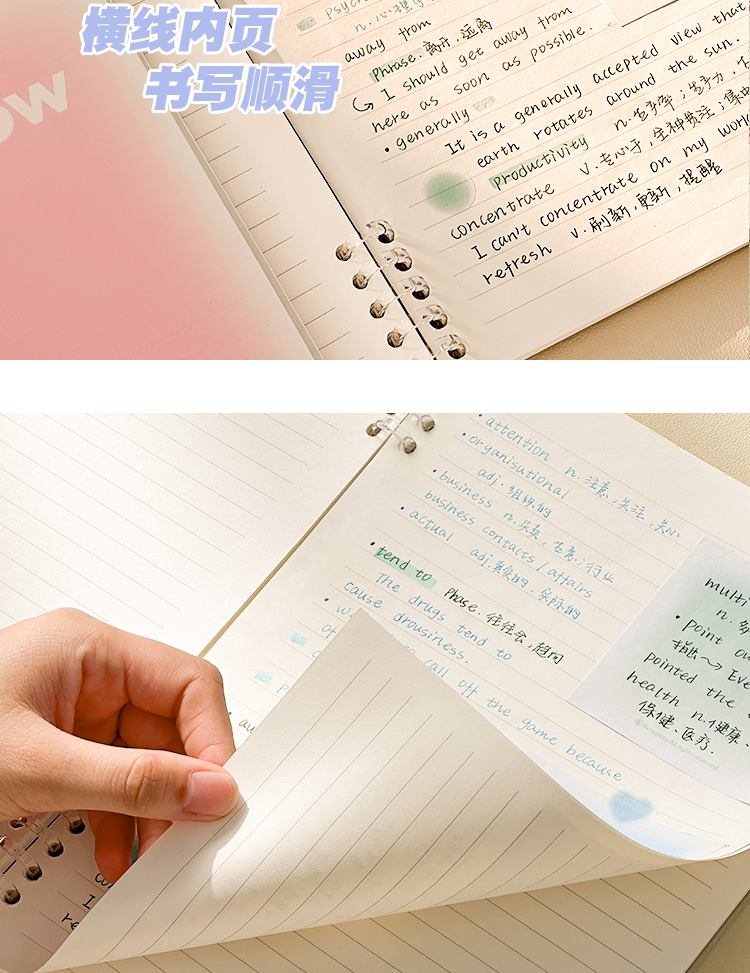 横线内页
书写顺滑
ow
n. 心理学
away from
Phrase. 离开，远离
I should get away from
here as soon as possible.
• generally
It is a generally accepted view that
earth rotates around the sun.
productivity n. 生产率；生产力，
concentrate v. 专心于，全神贯注；集中
I can't concentrate on my work
refresh v. 刷新，更新，提醒
• attention n. 注意，关注，关心
• organisutional
adj. 组织的
• business n. 买卖，生意，行业
business contacts / affairs
• actual adj. 真实的，实际的
• tend to Phase. 往往会，趋向
The drugs tend to
cause drousiness.
call off the game because
multi
n. 多
• point ou
指出 → Eve
pointed the
health n. 健康、
保健、医疗.
I
re